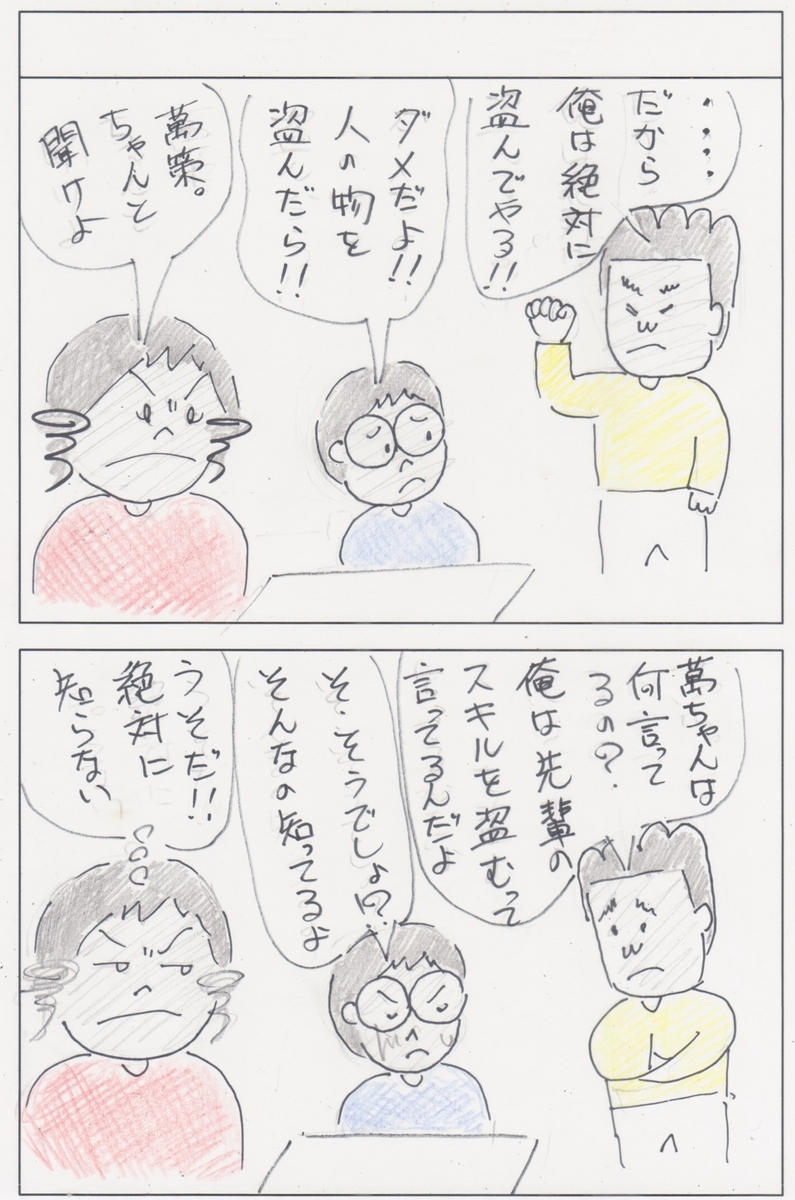 ・・・・
だから
俺は絶対に
盗んでやる!!
ダメだよ!!
人の物を
盗んだら!!
萬策。
ちゃんと
聞けよ
萬ちゃんは
何言って
るの?
俺は先輩の
スキルを盗むって
言ってるんだよ
そ、そうでしょ!?
そんなの知ってるよ
うそだ!!
絶対に
知らない